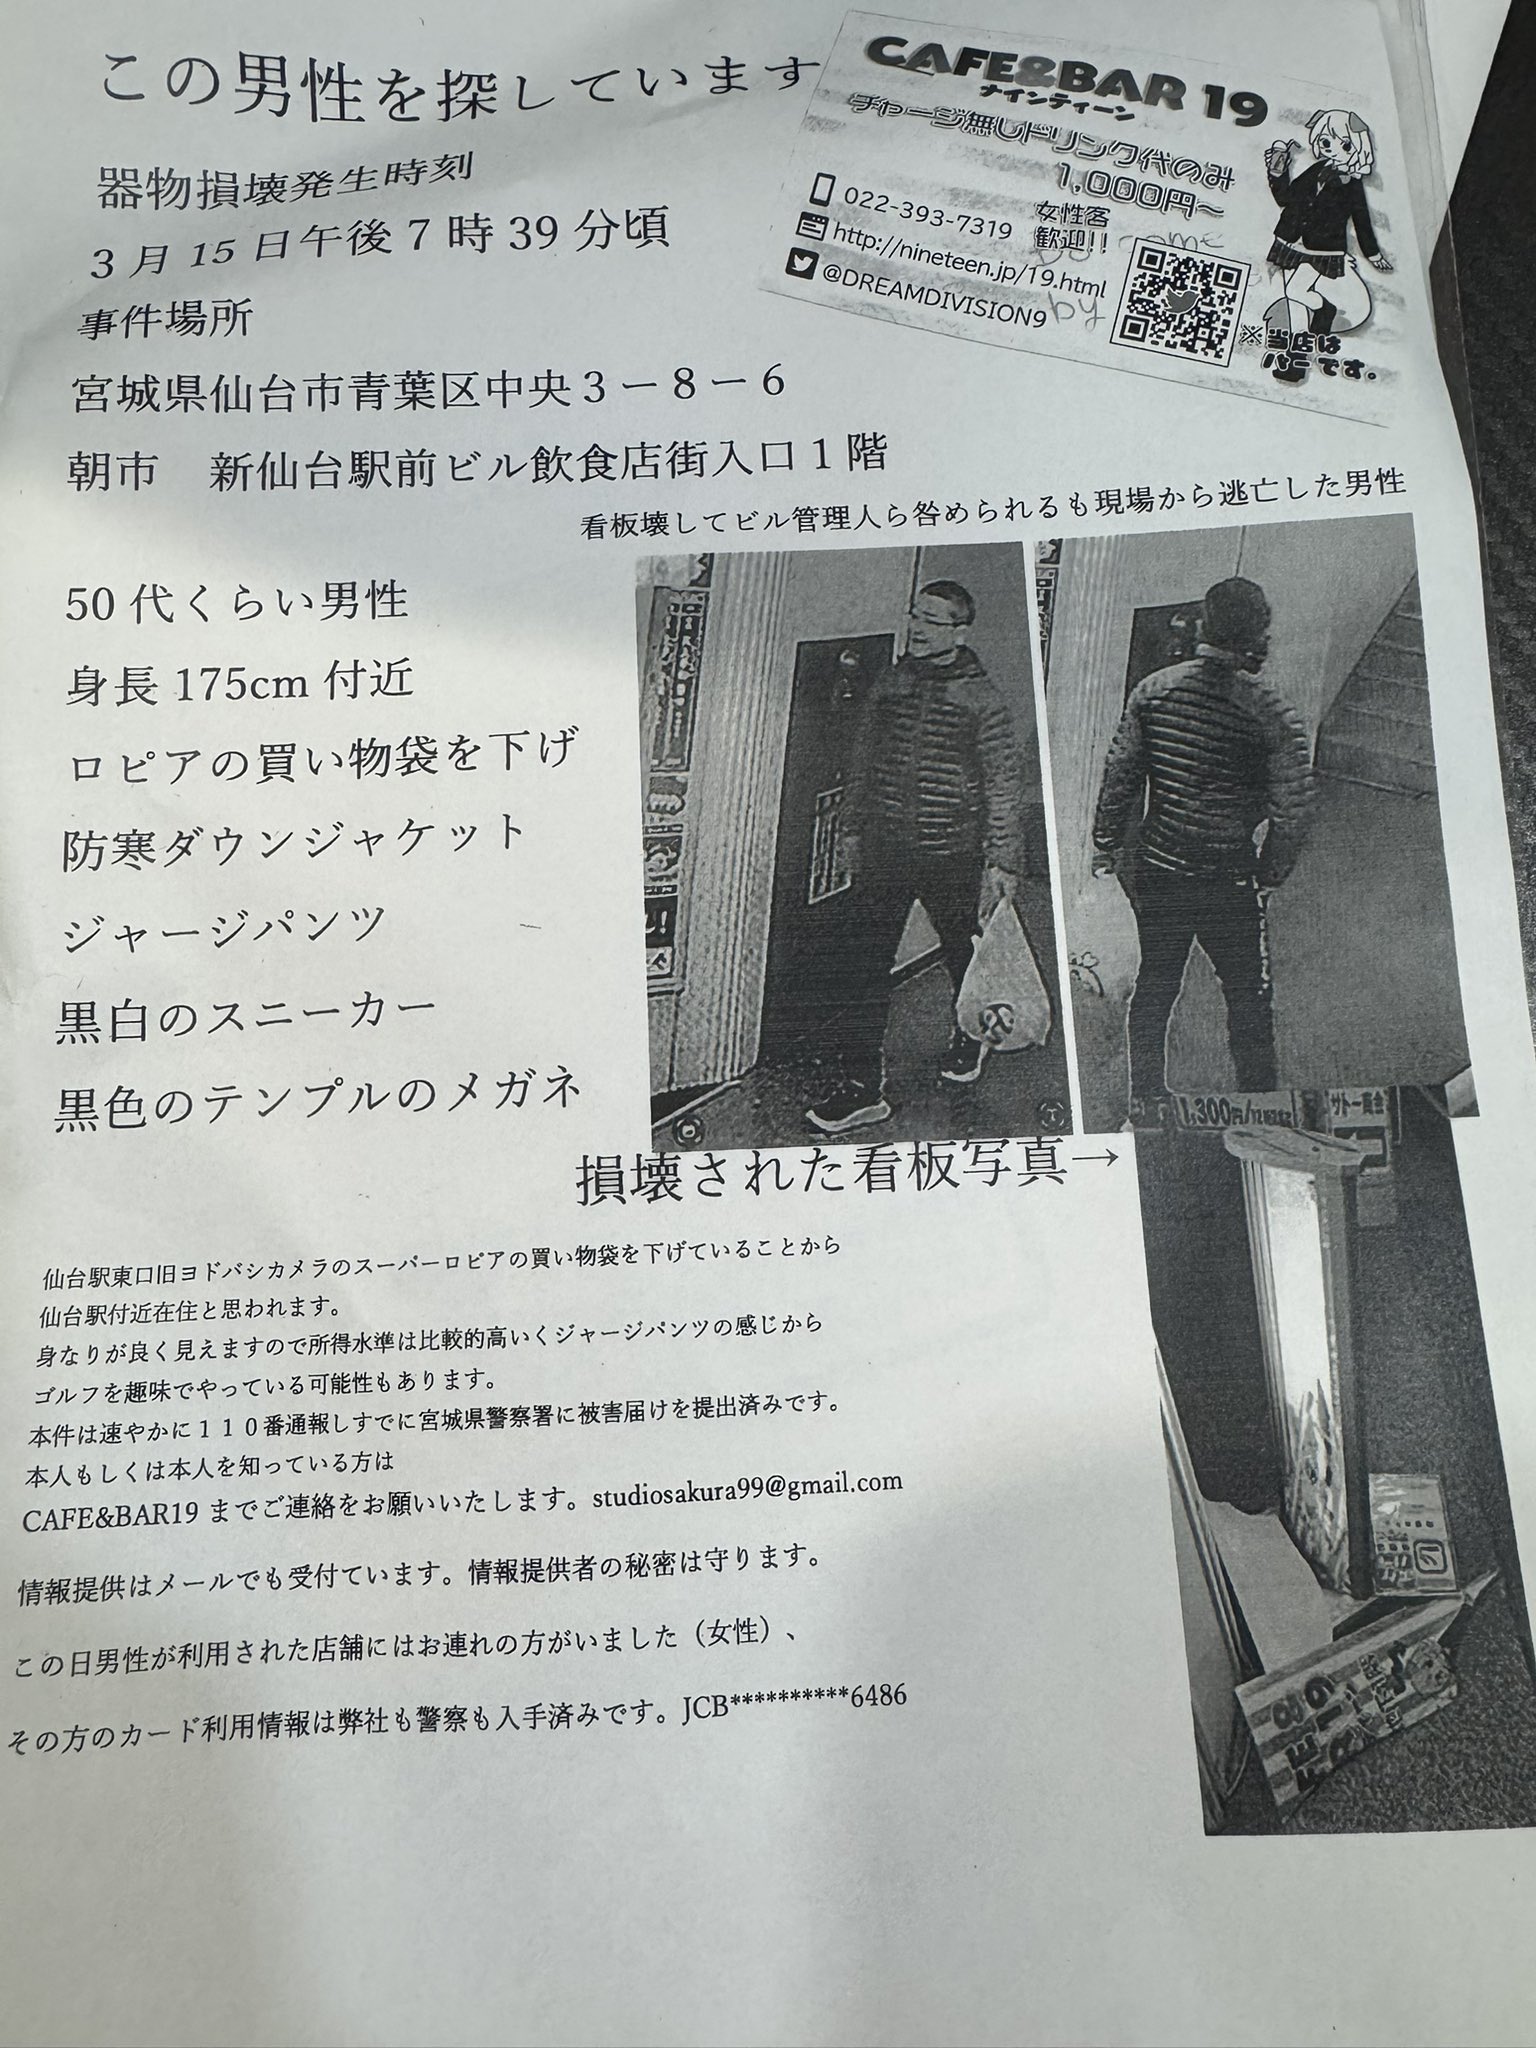 この男性を探しています
CAFE&BAR 19
ナインティーン
チャージ無しドリンク代のみ
1,000円～
022-393-7319
女性客
歓迎!!
http://nineteen.jp/19.html
@DREAMDIVISION9
by
※当店は
バーです。
器物損壊発生時刻
3月15日午後7時39分頃
事件場所
宮城県仙台市青葉区中央3－8－6
朝市　新仙台駅前ビル飲食店街入口1階
看板壊してビル管理人ら咎められるも現場から逃亡した男性
50代くらい男性
身長175cm付近
ロピアの買い物袋を下げ
防寒ダウンジャケット
ジャージパンツ
黒白のスニーカー
黒色のテンプルのメガネ
1,300円/12
サトー商会
損壊された看板写真→
仙台駅東口旧ヨドバシカメラのスーパーロピアの買い物袋を下げていることから
仙台駅付近在住と思われます。
身なりが良く見えますので所得水準は比較的高いくジャージパンツの感じから
ゴルフを趣味でやっている可能性もあります。
本件は速やかに１１０番通報しすでに宮城県警察署に被害届けを提出済みです。
本人もしくは本人を知っている方は
CAFE&BAR19までご連絡をお願いいたします。studiosakura99@gmail.com
情報提供はメールでも受付ています。情報提供者の秘密は守ります。
この日男性が利用された店舗にはお連れの方がいました（女性）、
その方のカード利用情報は弊社も警察も入手済みです。JCB**********6486